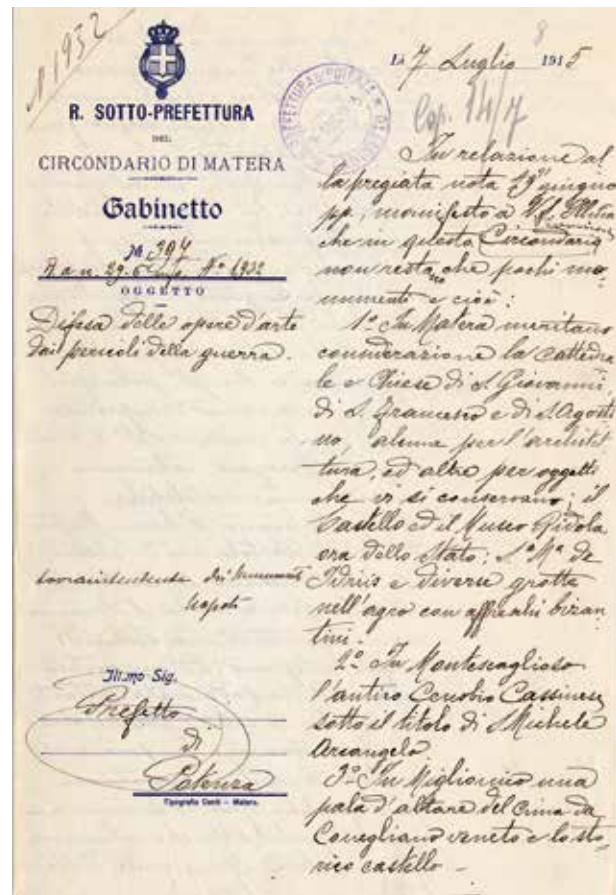 N 1932
R. SOTTO-PREFETTURA
DEL
CIRCONDARIO DI MATERA
Gabinetto
N. 397
R a n. 29.6 N° 1932
OGGETTO
Difesa delle opere d'arte
dai pericoli della guerra.
sovraintendente dei Monumenti
Napoli
Ill.mo Sig.
Prefetto
di
Potenza
Tipografia Conti - Matera.
Lì 7 Luglio 1915
8
Cop. 14/7
In relazione al
la pregiata nota 29 giugno
pp, manifesto a V.S. Ill.ma
che in questo Circondario
non restano che pochi mo
numenti e cioè:
1° In Matera meritano
considerazione la Cattedra
le e Chiese di S. Giovanni,
di S. Francesco e di S. Agosti
no, alcune per l'architet
tura, ed altre per oggetti
che vi si conservano; il
Castello ed il Museo Ridola
ora dello Stato; S.a M.a de
Idriis e diverse grotte
nell'agro con affreschi bizan
tini.
2° In Montescaglioso
l'antico Cenobio Cassinese
sotto il titolo di S. Michele
Arcangelo
3° In Miglionico una
pala d'altare del Cima da
Conegliano veneto e lo sto
rico castello -